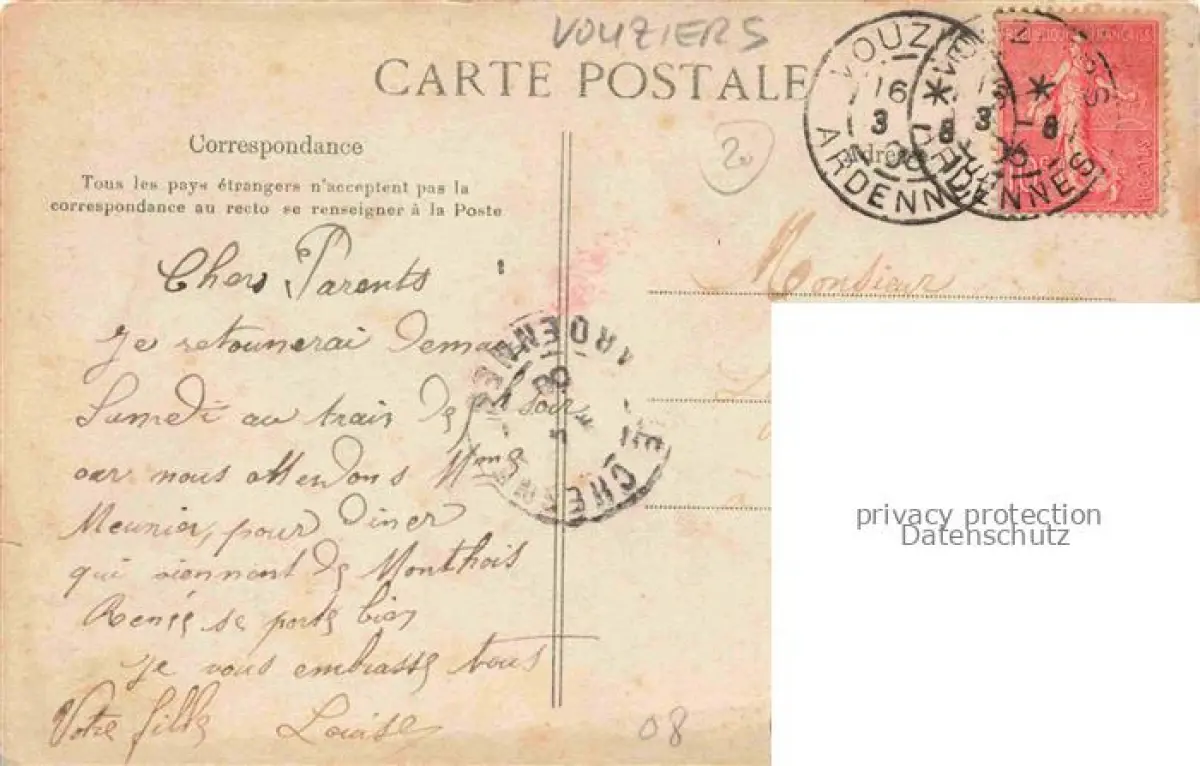 VOUZIERS
CARTE POSTALE
VOUZIERS
16
3
ARDENNES
VOUZIERS
* 16 *
8 3 8
ARDENNES
20
Correspondance
Adresse
Tous les pays étrangers n'acceptent pas la
correspondance au recto se renseigner à la Poste
Chers Parents
Je retounerai demain
Samedi au train de soir
car nous attendons Mme
Meunier, pour diner
qui viennent de Monthois
Renée se porte bien
Je vous embrasse tous
Votre fille Louise
Monsieur
ARDENNES
LE CHESNE
privacy protection
Datenschutz
08